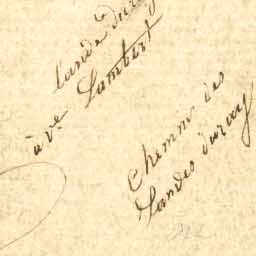 lande du
à Ve Lambert
Chemin des
Landes duray